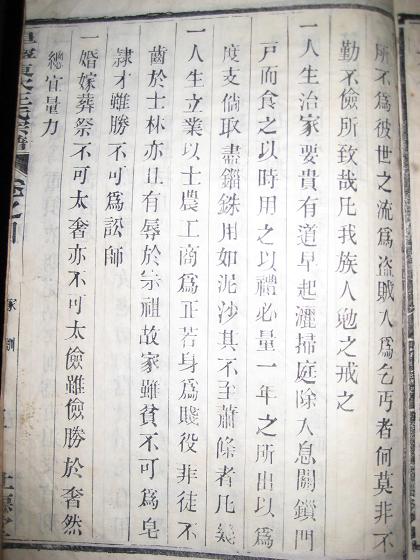 所不為彼世之流為盜賊人為乞丐者何莫非不
勤不儉所致哉凡我族人勉之戒之
一人生治家要貴有道早起灑掃庭除入息關鎖門
戸而食之以時用之以禮必量一年之所出以為
度支倘取盡錙銖用如泥沙其不至蕭條者凡幾
一人生立業以士農工商為正若身為賤役非徒不
齒於士林亦且有辱於宗祖故家雖貧不可為皂
隸才雖勝不可為訟師
一婚嫁葬祭不可太奢亦不可太儉雖儉勝於奢然
總宜量力
家訓